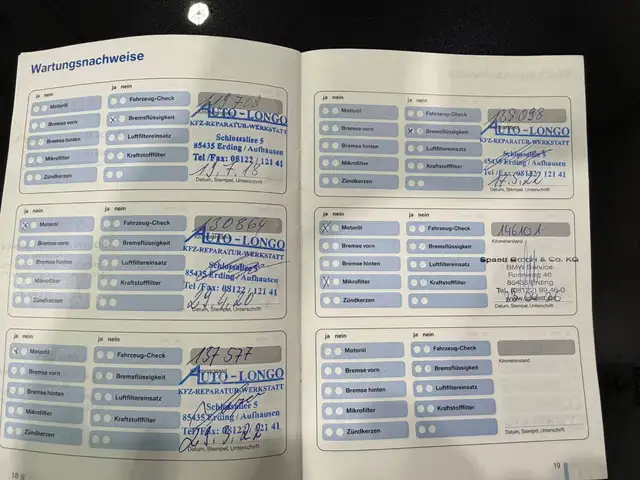 Wartungsnachweise
ja nein ja nein
Motoröl Fahrzeug-Check 119708
Bremse vorn Bremsflüssigkeit AUTO-LONGO
KFZ-REPARATUR-WERKSTATT
Bremse hinten Luftfiltereinsatz Schlossallee 5
85435 Erding / Aufhausen
Mikrofilter Kraftstofffilter Tel/Fax: 08122 / 121 41
Zündkerzen 19.7.18
Datum, Stempel, Unterschrift
ja nein ja nein
Motoröl Fahrzeug-Check 130864
Bremse vorn Bremsflüssigkeit AUTO-LONGO
KFZ-REPARATUR-WERKSTATT
Bremse hinten Luftfiltereinsatz Schlossallee 5
85435 Erding / Aufhausen
Mikrofilter Kraftstofffilter Tel/Fax: 08122 / 121 41
Zündkerzen 29.4.20
Datum, Stempel, Unterschrift
ja nein ja nein
Motoröl Fahrzeug-Check 137577
Bremse vorn Bremsflüssigkeit AUTO-LONGO
KFZ-REPARATUR-WERKSTATT
Bremse hinten Luftfiltereinsatz Schlossallee 5
85435 Erding / Aufhausen
Mikrofilter Kraftstofffilter Tel/Fax: 08122 / 121 41
Zündkerzen
Datum, Stempel, Unterschrift
18
ja nein ja nein
Motoröl Fahrzeug-Check 138098
Bremse vorn Bremsflüssigkeit AUTO-LONGO
KFZ-REPARATUR-WERKSTATT
Bremse hinten Luftfiltereinsatz Schlossallee 5
85435 Erding / Aufhausen
Mikrofilter Kraftstofffilter Tel/Fax: 08122 / 121 41
Zündkerzen 17.5.22
Datum, Stempel, Unterschrift
ja nein ja nein
Motoröl Fahrzeug-Check 146101
Kilometerstand
Bremse vorn Bremsflüssigkeit
Bremse hinten Luftfiltereinsatz Spaett GmbH & Co. KG
BMW Service
Mikrofilter Kraftstofffilter Rennweg 46
85435 Erding
Zündkerzen
www.spaett.de
Datum, Stempel, Unterschrift
ja nein ja nein
Motoröl Fahrzeug-Check
Kilometerstand
Bremse vorn Bremsflüssigkeit
Bremse hinten Luftfiltereinsatz
Mikrofilter Kraftstofffilter
Zündkerzen
Datum, Stempel, Unterschrift
19